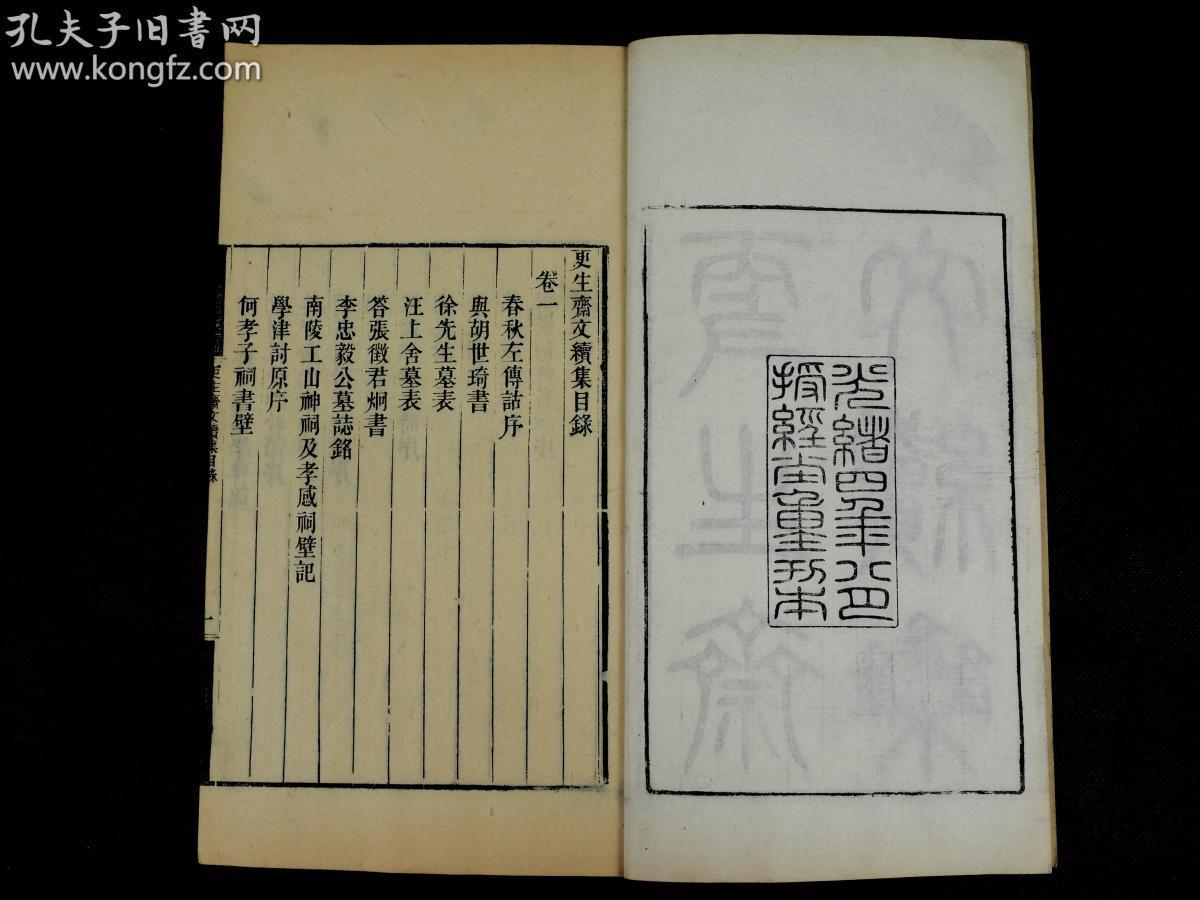 孔夫子旧书网
www.kongfz.com
光緒四年八月
授經堂重刊本
更生齋文續集目錄
卷一
春秋左傳詁序
與胡世琦書
徐先生墓表
汪上舍墓表
答張徵君炯書
李忠毅公墓誌銘
南陵工山神祠及孝感祠壁記
學津討原序
何孝子祠書壁
更生齋文續集目錄
一